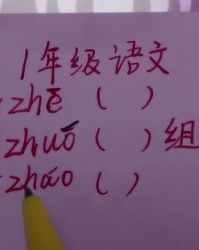 1年级语文
zhē ( )
zhuó ( )组
zháo ( )